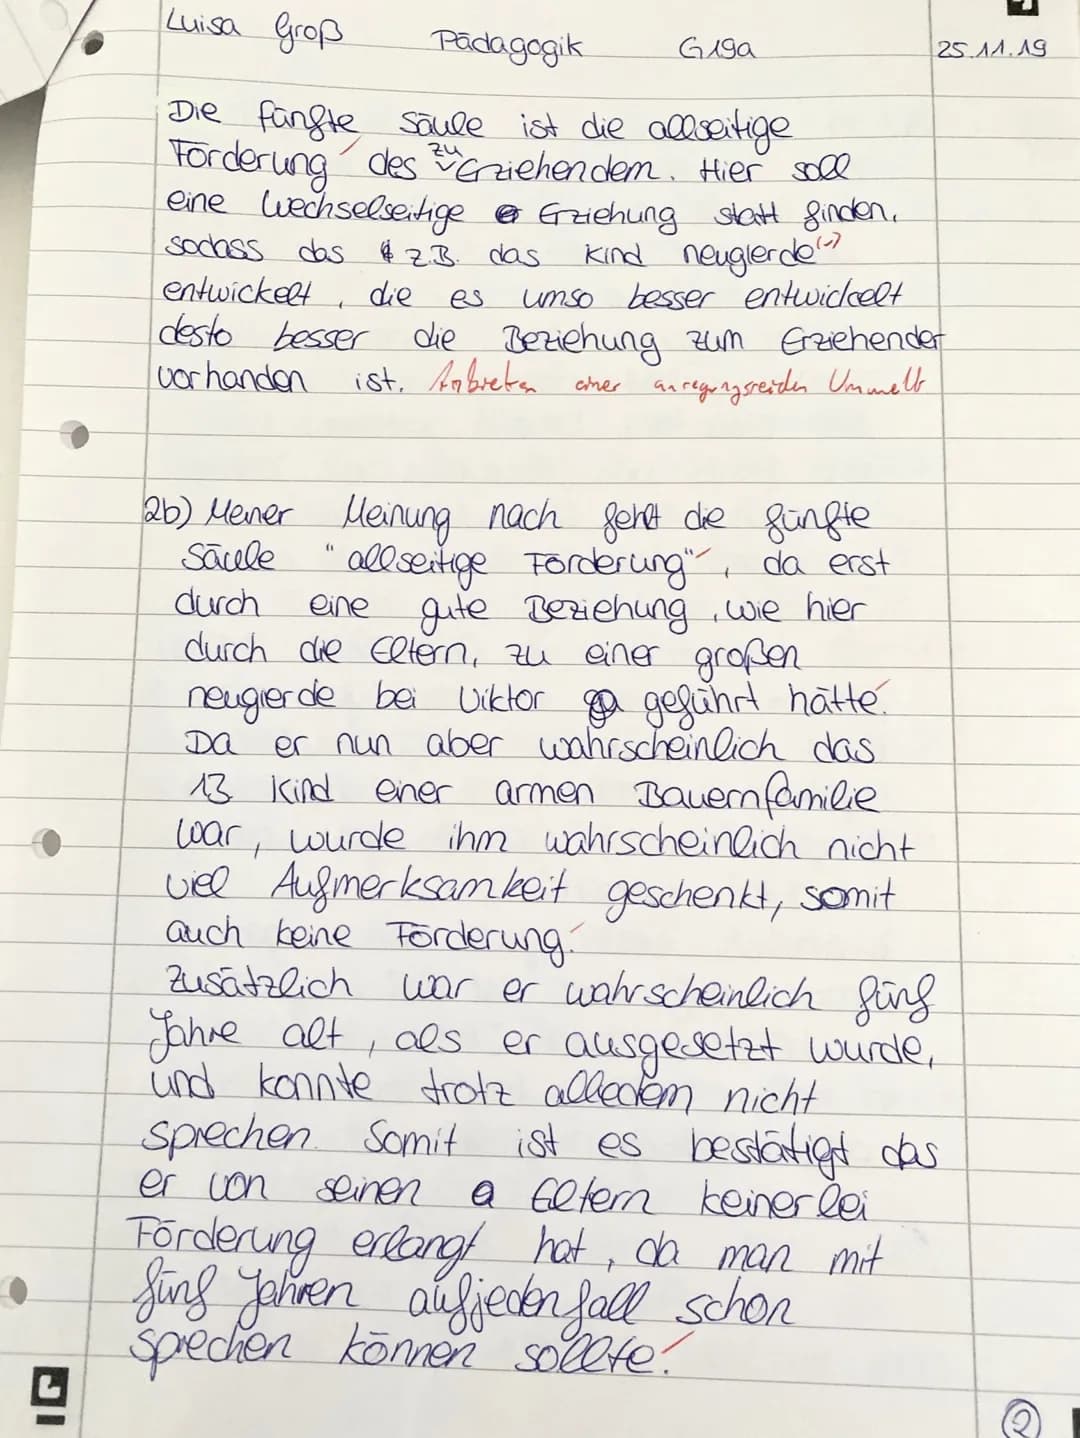 Luisa Groß Pädagogik G19a 25.11.19
Die fünfte Säule ist die allseitige
Förderung des zu Erziehendem. Hier soll
eine Wechselseitige Erziehung statt finden,
sodass das z.B. das Kind neugierde (-)
entwickelt, die es umso besser entwickelt
desto besser die Beziehung zum Erziehender
vorhanden ist. Anbieten einer anregungsreichen Umwelt
2b) Meiner Meinung nach fehlt die fünfte
Säule "allseitige Förderung", da erst
durch eine gute Beziehung, wie hier
durch die Eltern, zu einer großen
neugierde bei Viktor geführt hätte.
Da er nun aber wahrscheinlich das
13 Kind einer armen Bauernfamilie
war, wurde ihm wahrscheinlich nicht
viel Aufmerksamkeit geschenkt, somit
auch keine Förderung.
Zusätzlich war er wahrscheinlich fünf
Jahre alt, als er ausgesetzt wurde,
und konnte trotz alledem nicht
sprechen. Somit ist es bestätigt das
er von seinen Eltern keinerlei
Förderung erlangt hat, da man mit
fünf Jahren aufjedenfall schon
sprechen können sollte.
2